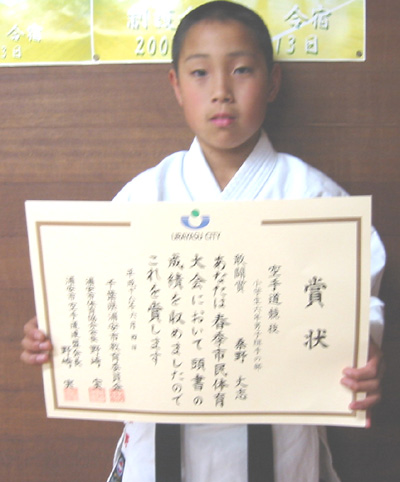 今宿
創
今宿
200
3日
13日
URAYASU CITY
賞状
空手道競技
小学生六年男子組手の部
敢闘賞 桑野大志
あなたは春季市民体育
大会において頭書の
成績を収めましたので
これを賞します
平成十六年六月四日
千葉県浦安市教育委員会
浦安市体育協会会長 野崎
浦安市空手道連盟会長 野崎